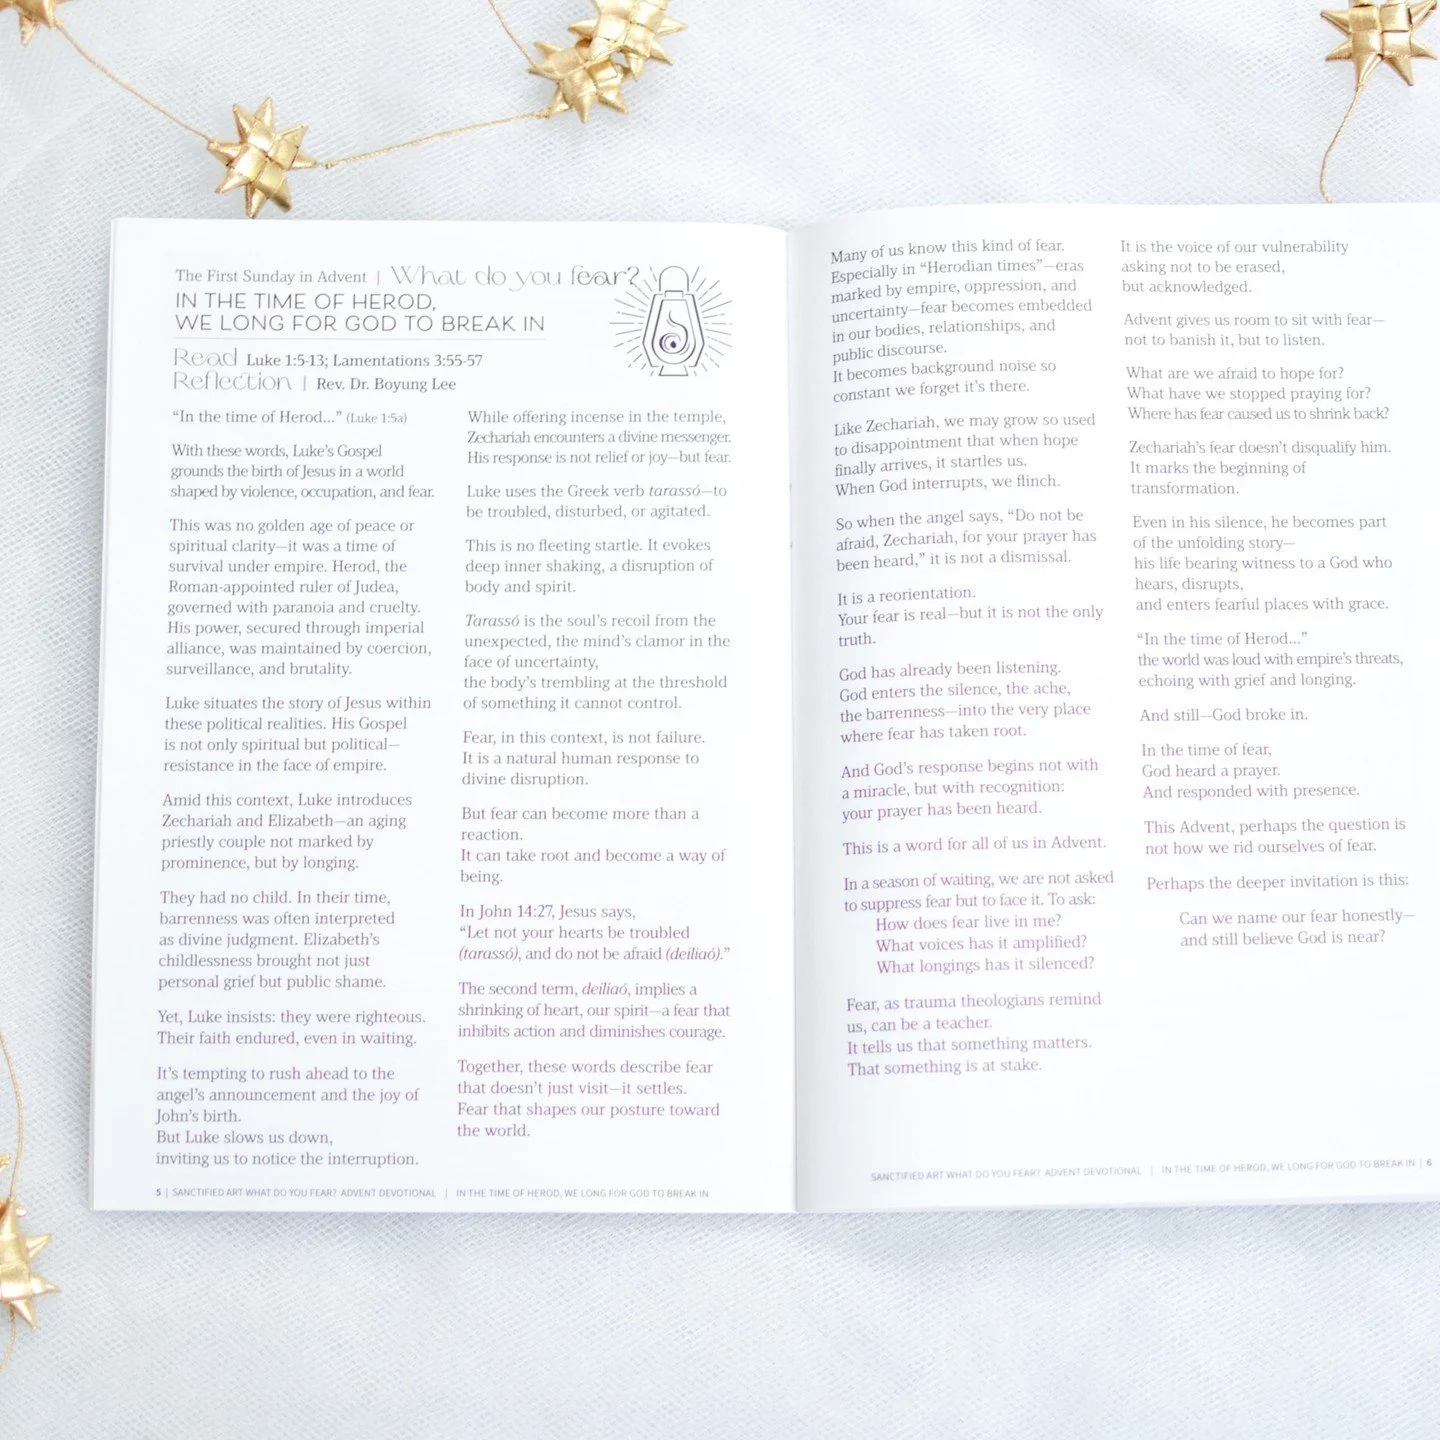 The First Sunday in Advent | What do you fear?
IN THE TIME OF HEROD,
WE LONG FOR GOD TO BREAK IN
Read Luke 1:5-13; Lamentations 3:55-57
Reflection | Rev. Dr. Boyung Lee
“In the time of Herod...” (Luke 1:5a)
With these words, Luke’s Gospel
grounds the birth of Jesus in a world
shaped by violence, occupation, and fear.
This was no golden age of peace or
spiritual clarity—it was a time of
survival under empire. Herod, the
Roman-appointed ruler of Judea,
governed with paranoia and cruelty.
His power, secured through imperial
alliance, was maintained by coercion,
surveillance, and brutality.
Luke situates the story of Jesus within
these political realities. His Gospel
is not only spiritual but political—
resistance in the face of empire.
Amid this context, Luke introduces
Zechariah and Elizabeth—an aging
priestly couple not marked by
prominence, but by longing.
They had no child. In their time,
barrenness was often interpreted
as divine judgment. Elizabeth’s
childlessness brought not just
personal grief but public shame.
Yet, Luke insists: they were righteous.
Their faith endured, even in waiting.
It’s tempting to rush ahead to the
angel’s announcement and the joy of
John’s birth.
But Luke slows us down,
inviting us to notice the interruption.
While offering incense in the temple,
Zechariah encounters a divine messenger.
His response is not relief or joy—but fear.
Luke uses the Greek verb tarassó—to
be troubled, disturbed, or agitated.
This is no fleeting startle. It evokes
deep inner shaking, a disruption of
body and spirit.
Tarassó is the soul’s recoil from the
unexpected, the mind’s clamor in the
face of uncertainty,
the body’s trembling at the threshold
of something it cannot control.
Fear, in this context, is not failure.
It is a natural human response to
divine disruption.
But fear can become more than a
reaction.
It can take root and become a way of
being.
In John 14:27, Jesus says,
“Let not your hearts be troubled
(tarassó), and do not be afraid (deiliaó).”
The second term, deiliaó, implies a
shrinking of heart, our spirit—a fear that
inhibits action and diminishes courage.
Together, these words describe fear
that doesn’t just visit—it settles.
Fear that shapes our posture toward
the world.
5 | SANCTIFIED ART WHAT DO YOU FEAR? ADVENT DEVOTIONAL | IN THE TIME OF HEROD, WE LONG FOR GOD TO BREAK IN
Many of us know this kind of fear.
Especially in “Herodian times”—eras
marked by empire, oppression, and
uncertainty—fear becomes embedded
in our bodies, relationships, and
public discourse.
It becomes background noise so
constant we forget it’s there.
Like Zechariah, we may grow so used
to disappointment that when hope
finally arrives, it startles us.
When God interrupts, we flinch.
So when the angel says, “Do not be
afraid, Zechariah, for your prayer has
been heard,” it is not a dismissal.
It is a reorientation.
Your fear is real—but it is not the only
truth.
God has already been listening.
God enters the silence, the ache,
the barrenness—into the very place
where fear has taken root.
And God’s response begins not with
a miracle, but with recognition:
your prayer has been heard.
This is a word for all of us in Advent.
In a season of waiting, we are not asked
to suppress fear but to face it. To ask:
How does fear live in me?
What voices has it amplified?
What longings has it silenced?
Fear, as trauma theologians remind
us, can be a teacher.
It tells us that something matters.
That something is at stake.
It is the voice of our vulnerability
asking not to be erased,
but acknowledged.
Advent gives us room to sit with fear—
not to banish it, but to listen.
What are we afraid to hope for?
What have we stopped praying for?
Where has fear caused us to shrink back?
Zechariah’s fear doesn’t disqualify him.
It marks the beginning of
transformation.
Even in his silence, he becomes part
of the unfolding story—
his life bearing witness to a God who
hears, disrupts,
and enters fearful places with grace.
“In the time of Herod...”
the world was loud with empire’s threats,
echoing with grief and longing.
And still—God broke in.
In the time of fear,
God heard a prayer.
And responded with presence.
This Advent, perhaps the question is
not how we rid ourselves of fear.
Perhaps the deeper invitation is this:
Can we name our fear honestly—
and still believe God is near?
SANCTIFIED ART WHAT DO YOU FEAR? ADVENT DEVOTIONAL | IN THE TIME OF HEROD, WE LONG FOR GOD TO BREAK IN | 6